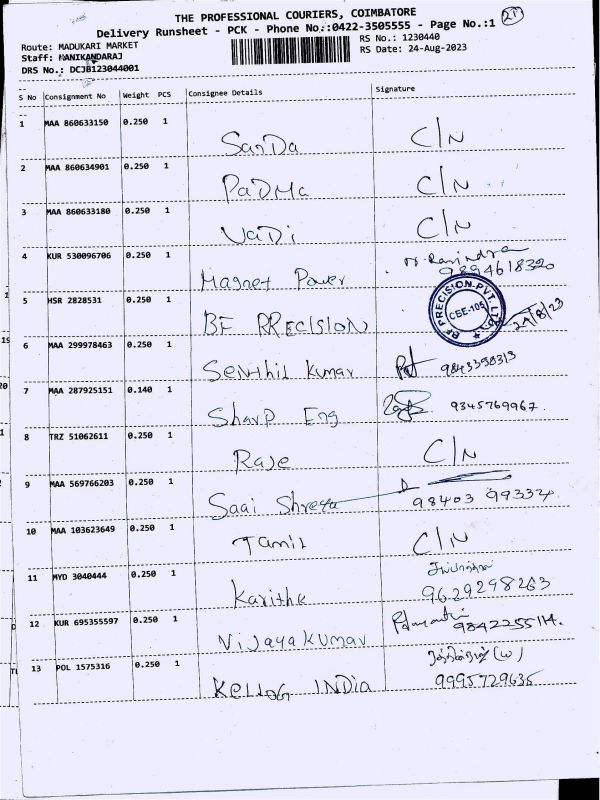 THE PROFESSIONAL COURIERS, COIMBATORE
Delivery Runsheet - PCK - Phone No.:0422-3505555 - Page No.:1
Route: MADUKARI MARKET
RS No.: 1230440
Staff: MANIKANDARAJ
RS Date: 24-Aug-2023
DRS No.: DCJB123044001
S No Consignment No Weight PCS Consignee Details Signature
1 MAA 860633150 0.250 1 SarDa C/N
2 MAA 860634901 0.250 1 PaDMa C/N
3 MAA 860633180 0.250 1 VaDi C/N
4 KUR 530096706 0.250 1 Magnet Power Ravindra
9894618320
5 HSR 2828531 0.250 1 BF PRECISION BF PRECISION PVT. LTD. CBE-105 24/8/23
6 MAA 299978463 0.250 1 Senthil Kumar 9843398313
7 MAA 287925151 0.140 1 Sharp Eng 9345769967.
8 TRZ 51062611 0.250 1 Raje C/N
9 MAA 569766203 0.250 1 Saai Shreya 98403 99334
10 MAA 103623649 0.250 1 Tamil C/N
11 MYD 3040444 0.250 1 Karithk
9629298263
12 KUR 695355597 0.250 1 Vijayakumar 9842255114.
13 POL 1575316 0.250 1 KELLOG INDIa
9995729635